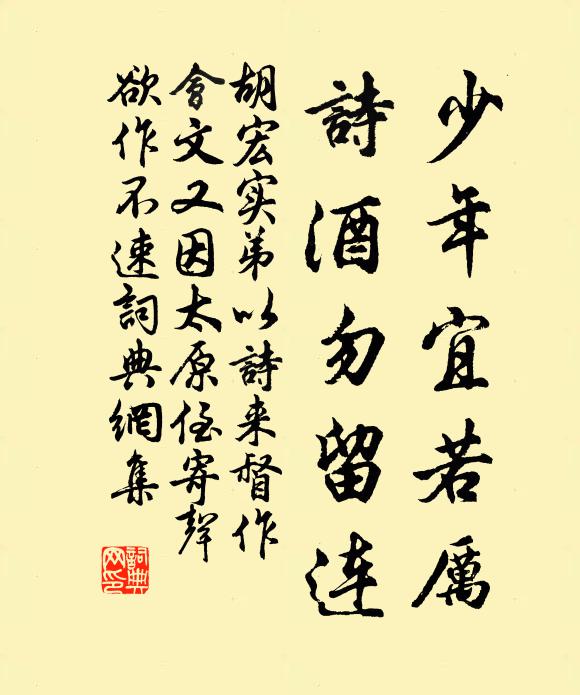 少年宜若厲
詩酒勿留連
胡宏实弟以詩来督作
會文又因太原侄寄聲
欲作不速詞典網集
詞典网印